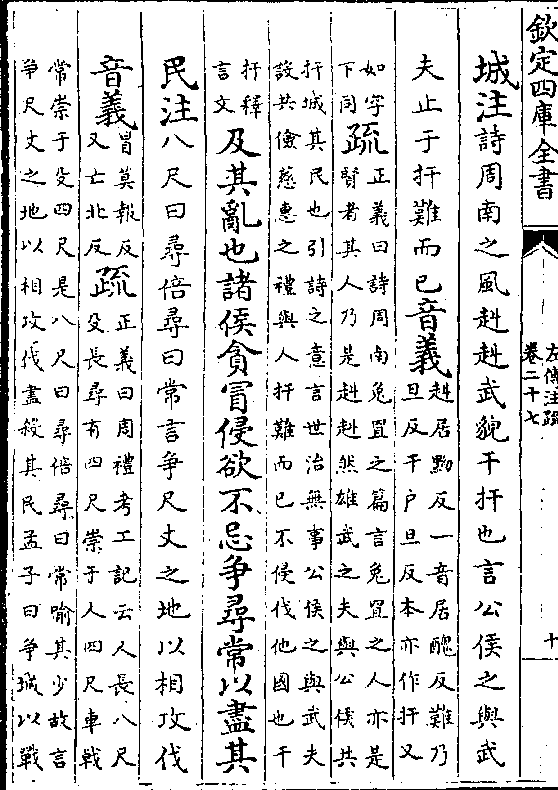 欽定四庫全書
左傳注疏
卷二十七
十
城注詩周南之風赳赳武貌干扞也言公侯之與武
夫止于扞難而已音義赳居黝反一音居醜反難乃
旦反干户旦反本亦作扞又
如字
下同疏正義曰詩周南兔罝之篇言兔罝之人亦是
賢者其人乃是赳赳然雄武之夫與公侯共
扞城其民也引詩之意言世治無事公侯之與武夫
設共儉慈惠之禮與人扞難而已不侵伐他國也干
扞釋
言文及其亂也諸侯貪冒侵欲不忌争尋常以盡其
民注八尺曰尋倍尋曰常言争尺丈之地以相攻伐
音義冒莫報反
又亡北反疏正義曰周禮考工記云人長八尺
殳長尋有四尺崇于人四尺車戟
常崇于殳四尺是八尺曰尋倍尋曰常喻其少故言
争尺丈之地以相攻伐盡殺其民孟子曰争城以戰